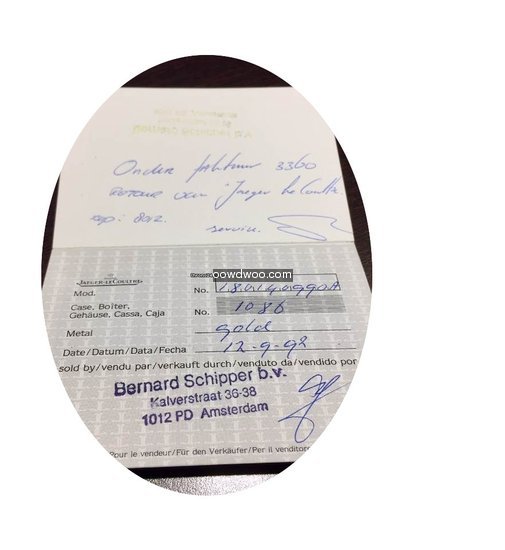 Bernard Schipper b.v.
Onder 3360
retour van Jaeger LeCoultre
rep: 8012.
service.
oowdwoo.com
JAEGER-LECOULTRE
Mod.
No.
Case, Boîtier,
Gehäuse, Cassa, Caja
No. 1086
Metal gold
Date/Datum/Data/Fecha 12-9-92
sold by/vendu par/verkauft durch/venduto da/vendido por
Bernard Schipper b.v.
Kalverstraat 36-38
1012 PD Amsterdam
Pour le vendeur/Für den Verkäufer/Per il venditore